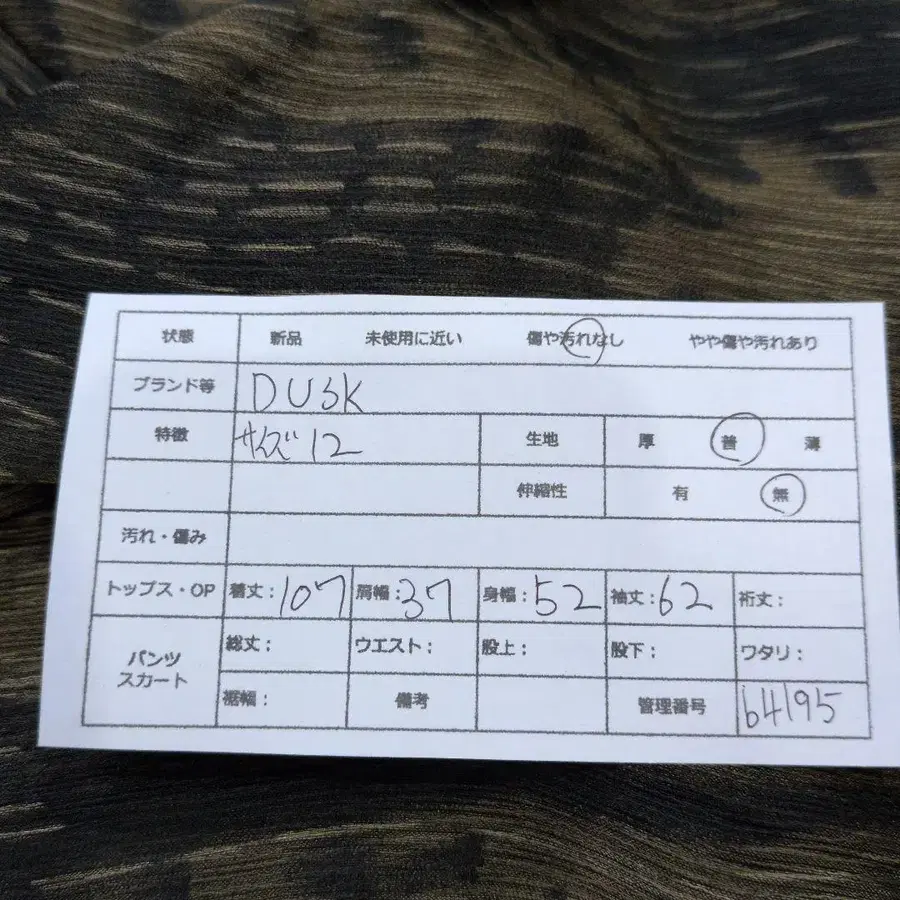 状態 新品 未使用に近い 傷や汚れなし やや傷や汚れあり
ブランド等 DUSK
特徴 サイズ12 生地 厚 普 薄
伸縮性 有 無
汚れ・傷み
トップス・OP 着丈:107 肩幅:37 身幅:52 袖丈:62 裄丈:
パンツ スカート 総丈: ウエスト: 股上: 股下: ワタリ:
裾幅: 備考 管理番号 64195